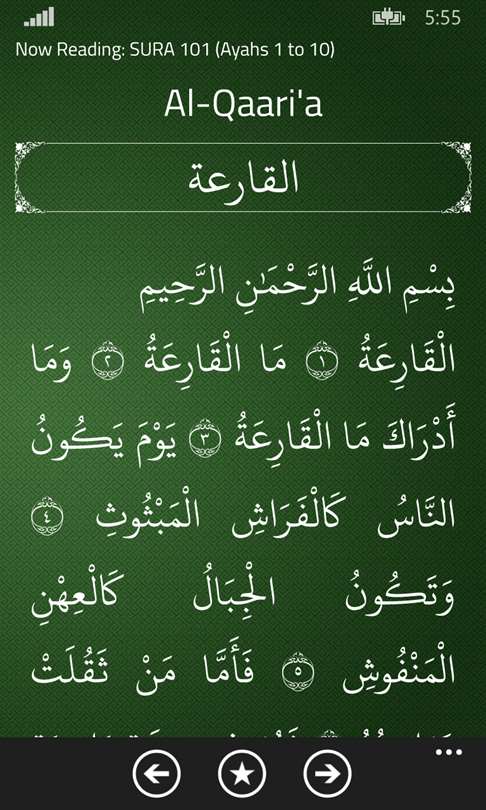 5:55
Now Reading: SURA 101 (Ayahs 1 to 10)
Al-Qaari'a
القارعة
بِسْمِ اللَّهِ الرَّحْمَٰنِ الرَّحِيمِ
الْقَارِعَةُ ١ مَا الْقَارِعَةُ ٢ وَمَا
أَدْرَاكَ مَا الْقَارِعَةُ ٣ يَوْمَ يَكُونُ
النَّاسُ كَالْفَرَاشِ الْمَبْثُوثِ ٤
وَتَكُونُ الْجِبَالُ كَالْعِهْنِ
الْمَنْفُوشِ ٥ فَأَمَّا مَنْ ثَقُلَتْ